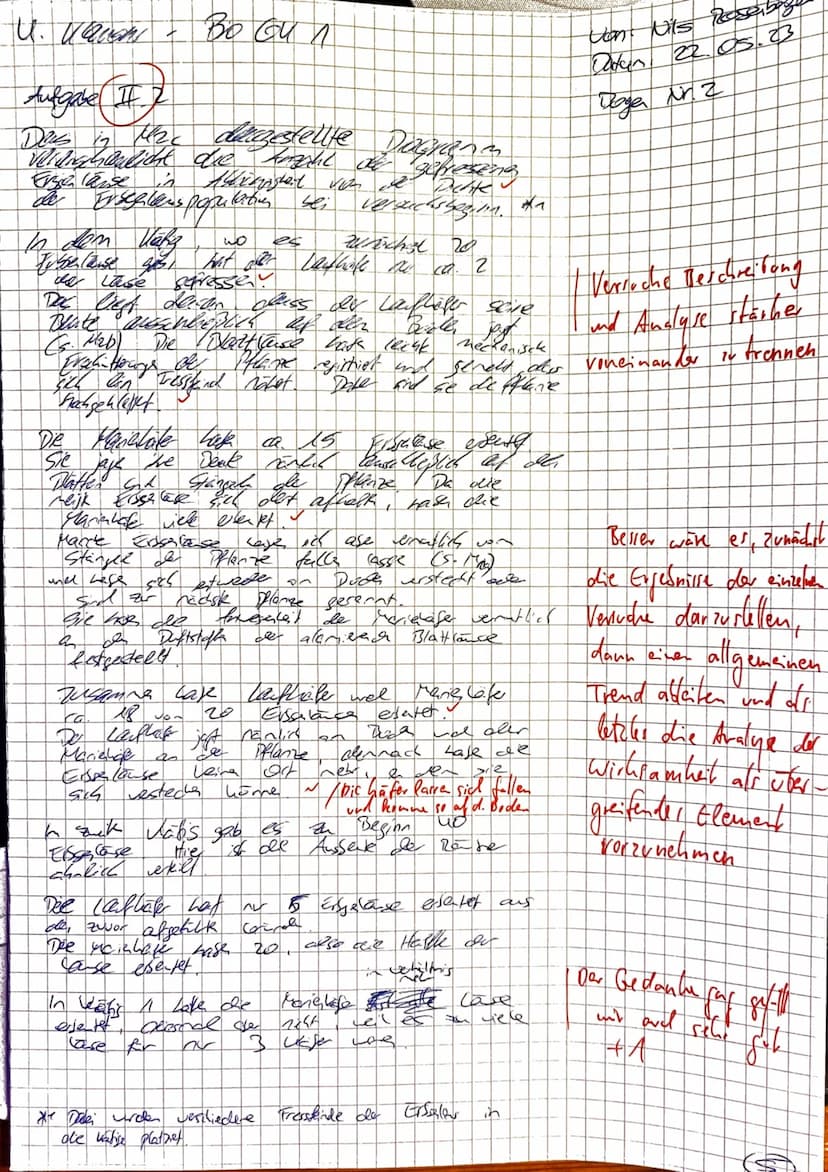 U. Klausur - Bo GU 1
Von: Nils
Datum: 22.05.23
Bogen Nr. 2
Aufgabe II.2
Das in M2c dargestellte Diagramm
veranschaulicht die Anzahl der gefressenen
Erbsenläuse in Abhängigkeit von der Dichte
der bei Versuchsbeginn. *1
In dem Käfig, wo es zunächst 20
Erbsenläuse gab, hat der Laufkäfer nur ca. 2
der Läuse gefressen.
Das liegt daran, dass der Laufkäfer seine
Beute ausschließlich auf dem Boden jagt
(s. M2b) Die Blattläuse habe leicht mechanische
Erschütterungen der Pflanze registriert und gemerkt, dass
sich ein Fressfeind nähert. Daher sind sie die Pflanze
hochgeklettert.
Versuche Beschreibung
und Analyse stärker
voneinander zu trennen
Die Marienkäfer habe ca 15 Erbsenläuse
Sie jage ihre Beute nämlich ausschließlich auf den
Blättern und Stängeln der Pflanze. Da die
Erbsenläuse sich dort aufhalte, habe die
Marienkäfer viele erbeutet.
Manche Erbsenläuse habe sich aber vermutlich vom
Stängel der Pflanze falle lasse (s.
und habe sich entweder am Boden versteckt oder
sind zur nächste Pflanze gerannt.
Sie habe die Anwesenheit der Marienkäfer vermutlich
an den Duftstoffe der alarmierende Blattläuse
festgestellt.
Besser wäre es, zunächst
die Ergebnisse der einzelnen
Versuche darzustellen,
dann einen allgemeinen
Trend ableiten und als
letztes die Analyse der
Wirksamkeit als über-
greifendes Element
vorzunehmen
Zusamme habe Laufkäfer und Marienkäfer
ca. 18 von 20 Erbsenläuse erbeutet.
Der Laufkäfer jagt nämlich am Boden und der
Marienkäfer an der Pflanze, demnach habe die
Erbsenläuse keine Ort mehr, an dem sie
sich verstecke könne
/Die Käfer lassen sich fallen
und komme so auf d. Boden
In zweite Käfig gab es zu Beginn 40
Erbsenläuse. Hier ist die der Räuber
ähnlich
Der Laufkäfer hat nur 5 Erbsenläuse erbeutet aus
de zuvor Gründe
Die Marienkäfer habe 20, also die Hälfte der
Läuse erbeutet.
im Verhältnis
In Käfig 1 habe die Marienkäfer Läuse
erbeutet, diesmal aber nicht, weil es zu viele
Läuse für nur 3 Käfer war
Der Gedanke gefällt
mir auch sehr gut
+1
*1 Dabei wurden verschiedene Fressfeinde der Erbsenlaus in
die Käfige platziert.
5